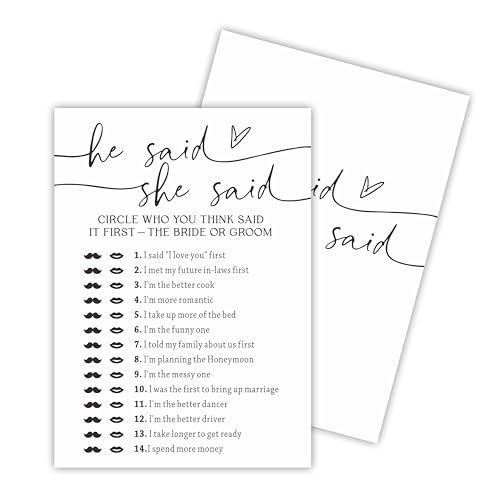 he said
she said
CIRCLE WHO YOU THINK SAID
IT FIRST – THE BRIDE OR GROOM
1. I said "I love you" first
2. I met my future in-laws first
3. I'm the better cook
4. I'm more romantic
5. I take up more of the bed
6. I'm the funny one
7. I told my family about us first
8. I'm planning the Honeymoon
9. I'm the messy one
10. I was the first to bring up marriage
11. I'm the better dancer
12. I'm the better driver
13. I take longer to get ready
14. I spend more money
id
said